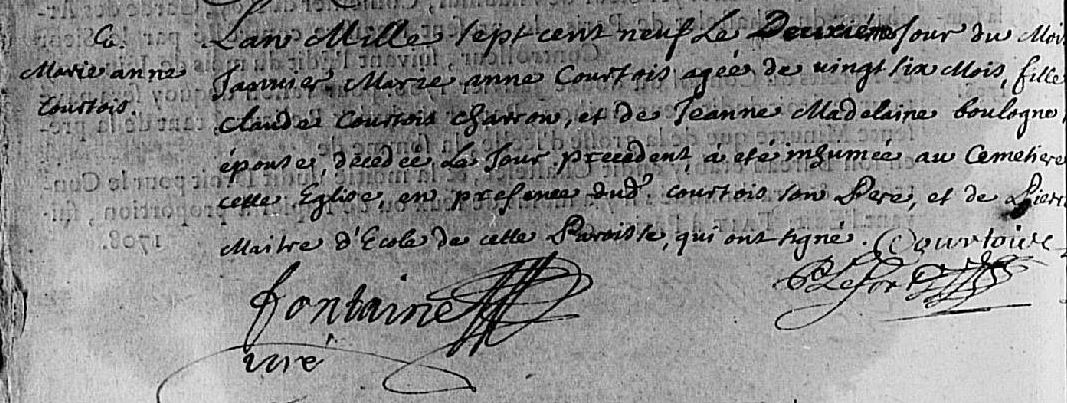 Co.
Marie anne
Courtois.
Lan Mille sept cent neuf Le Deuxiéme Jour du Mois
Janvier Marie anne Courtois agée de vingt six Mois, fille
Claude Courtois Charron, et de Jeanne Madelaine boulogne,
épouse, décedée Le Jour precedent, à eté inhumée au Cemetiere
cette Eglise, en presence dud.t courtois son Pere, et de
Maitre d'Ecole de cette Paroisse, qui ont signé. Courtois
PLefort
fontaine
curé
1708.